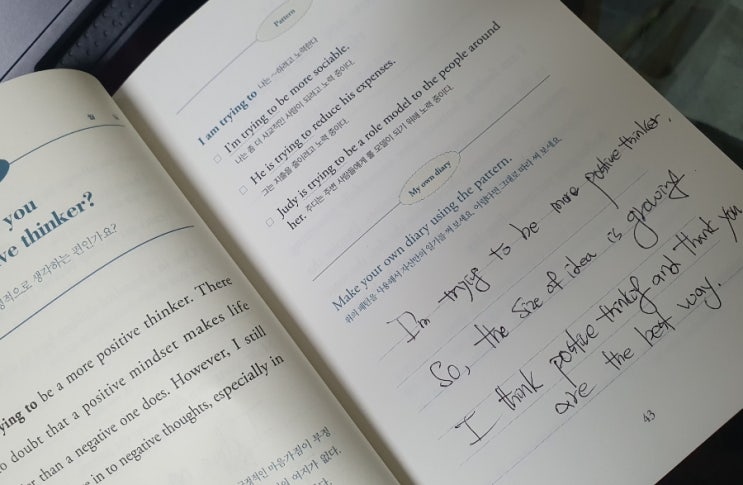 you
ve thinker?
으로 생각하는 편인가요?
ying to be a more positive thinker. There
o doubt that a positive mindset makes life
er than a negative one does. However, I still
e in to negative thoughts, especially in
긍정적인 마음가짐이 부정
여지가 없다.
Pattern
I am trying to 나는 ~하려고 노력한다
I'm trying to be more sociable.
나는 좀 더 사교적인 사람이 되려고 노력 중이다.
He is trying to reduce his expenses.
그는 지출을 줄이려고 노력 중이다.
Judy is trying to be a role model to the people around
her. 주디는 주변 사람들에게 롤 모델이 되기 위해 노력 중이다.
My own diary
Make your own diary using the pattern.
위의 패턴을 사용해서 자신만의 일기를 써 보세요. 어렵다면 그대로 따라 써 보세요.
I'm tryigs to be more postive thinker.
So, the size of idea is growing.
I think postive thinkig and thank you
are the best way.
43